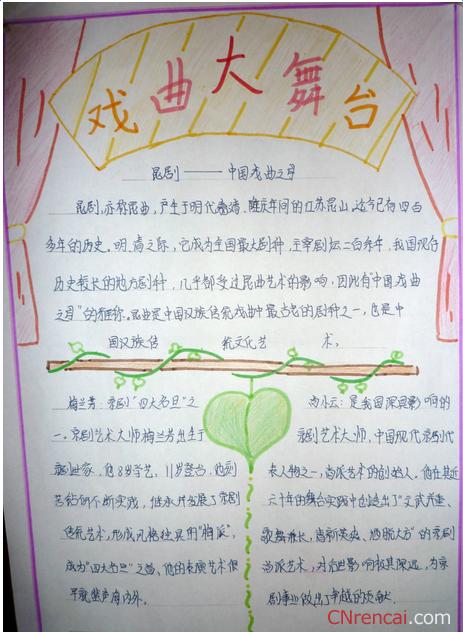 戏曲大舞台
昆剧——中国戏曲之母
昆剧,亦称昆曲,产生于明代嘉靖、隆庆年间的江苏昆山,迄今已有四百
多年的历史。明、清之际,它成为全国最大剧种,主宰剧坛二百余年,我国现存
历史较长的地方剧种,几乎都受过昆曲艺术的影响,因此有"中国戏曲
之母"的雅称。昆曲是中国汉族传统戏曲中最古老的剧种之一,也是中
国汉族传统文化艺术。
梅兰芳:京剧"四大名旦"之
一。京剧艺术大师梅兰芳出生于
京剧世家,他8岁学艺,11岁登台,他刻
苦钻研不断实践,继承并发展了京剧
传统艺术,形成风格独具的"梅派",
成为"四大名旦"之首,他的表演艺术很
早就蜚声海内外。
尚小云:是我国深具影响的
京剧艺术大师,中国现代京剧代
表人物之一,尚派艺术的创始人。他在其近
六十年的舞台实践中创造出了"文武并重、
歌舞兼长、
的京剧
尚派艺术,对后世影响极其深远,为京
剧事业做出了卓越的贡献.
CNrencai.com